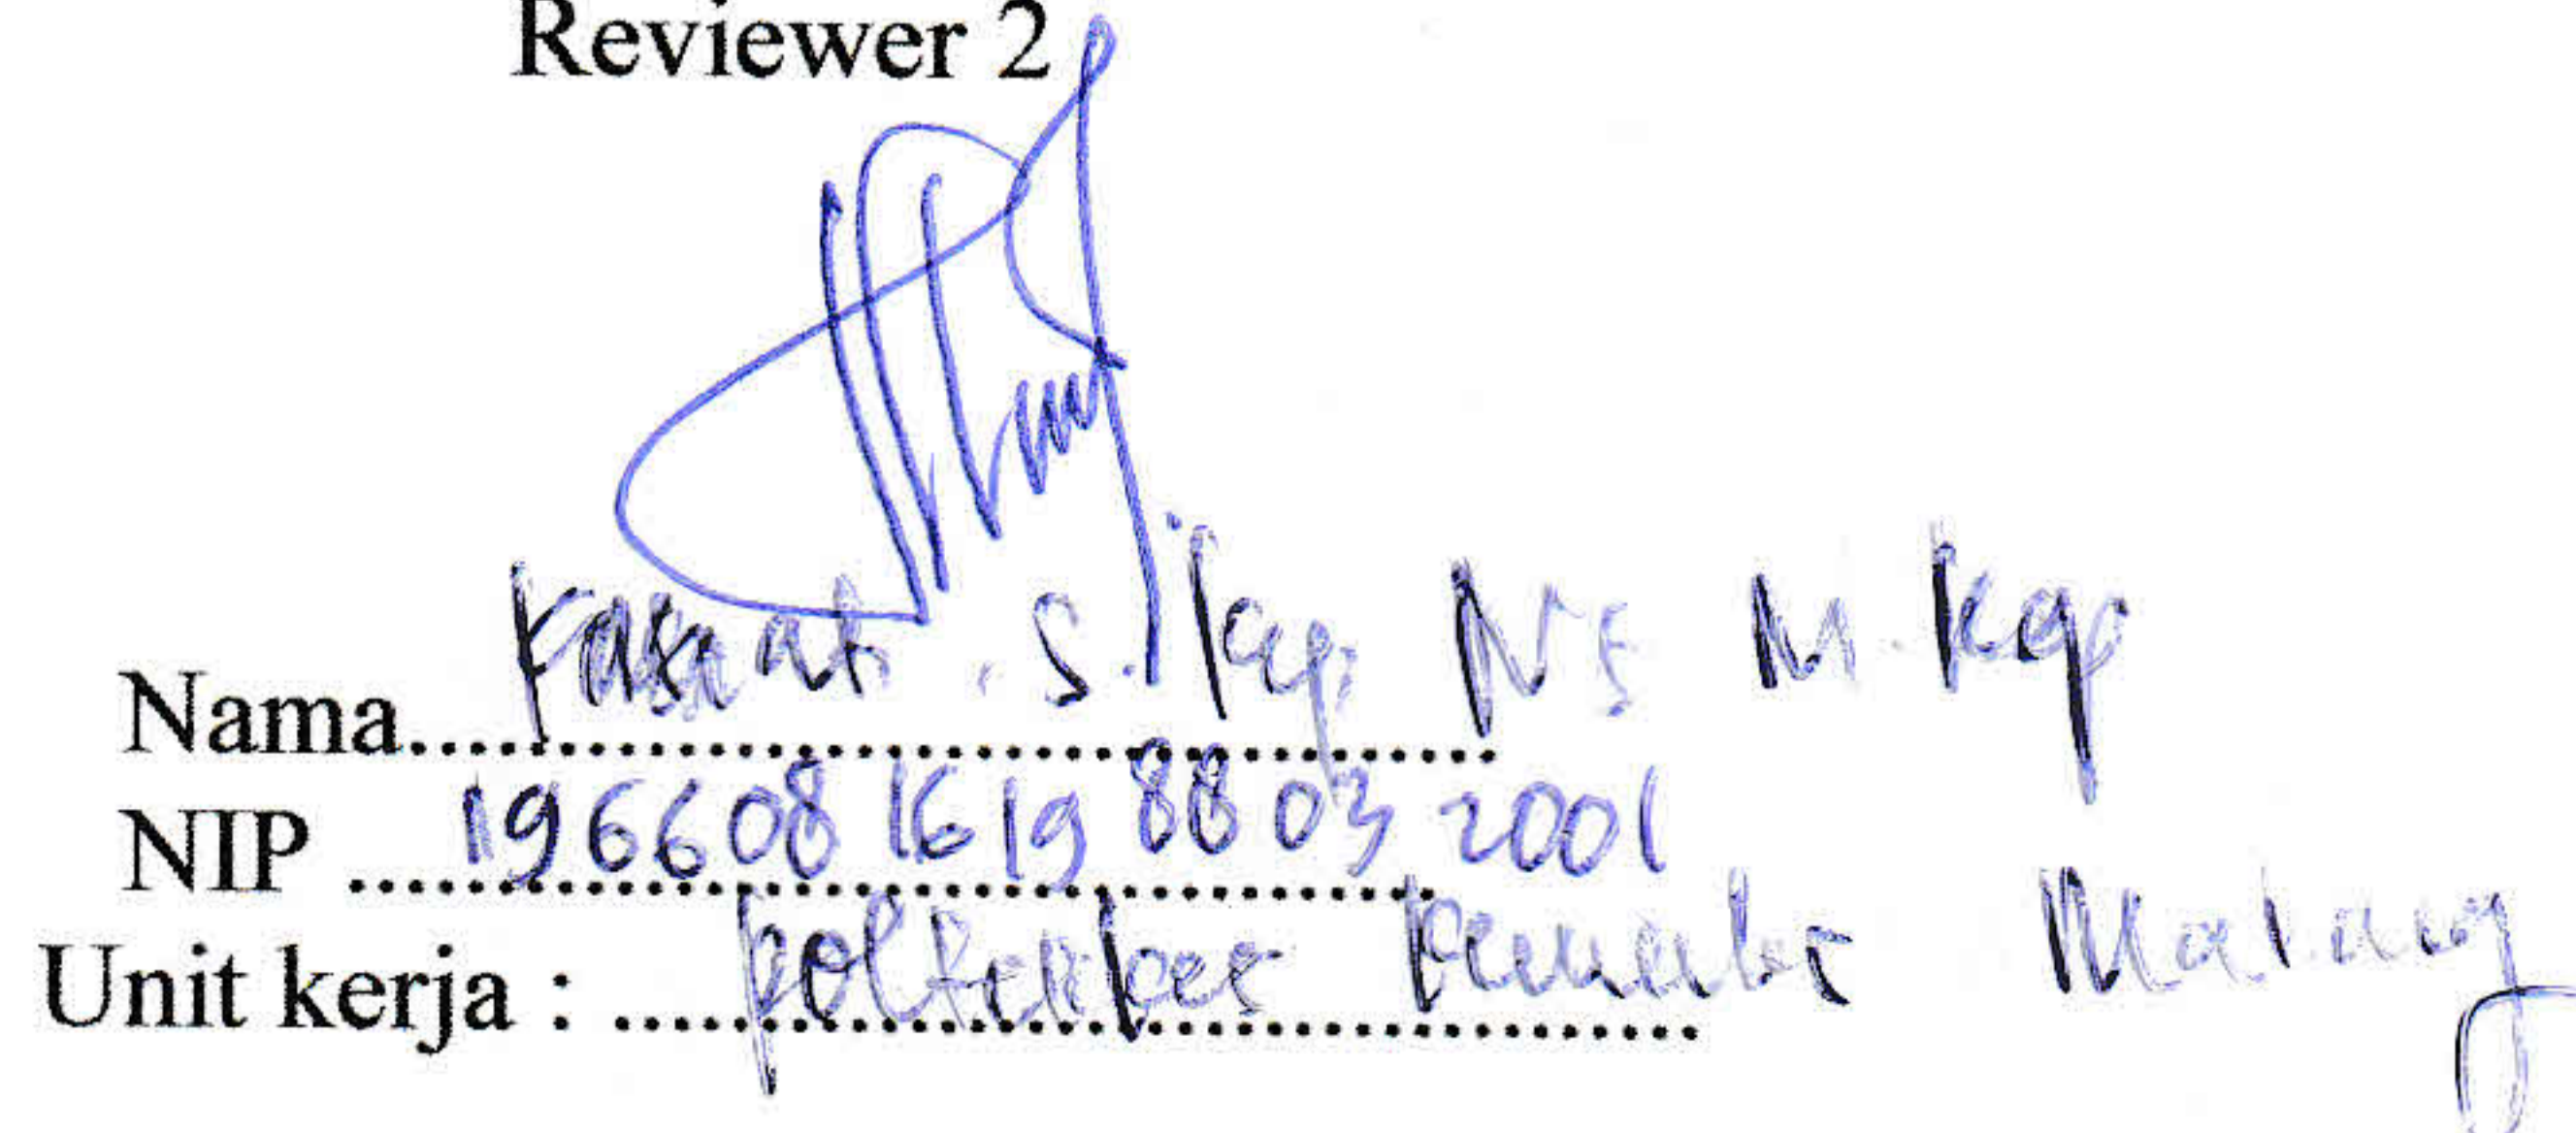 Reviewer 2
Nama.......... S.Kep Ns M.Kep
NIP .......... 196608161988032001
Unit kerja : .......... Poltekkes Kemenkes Malang